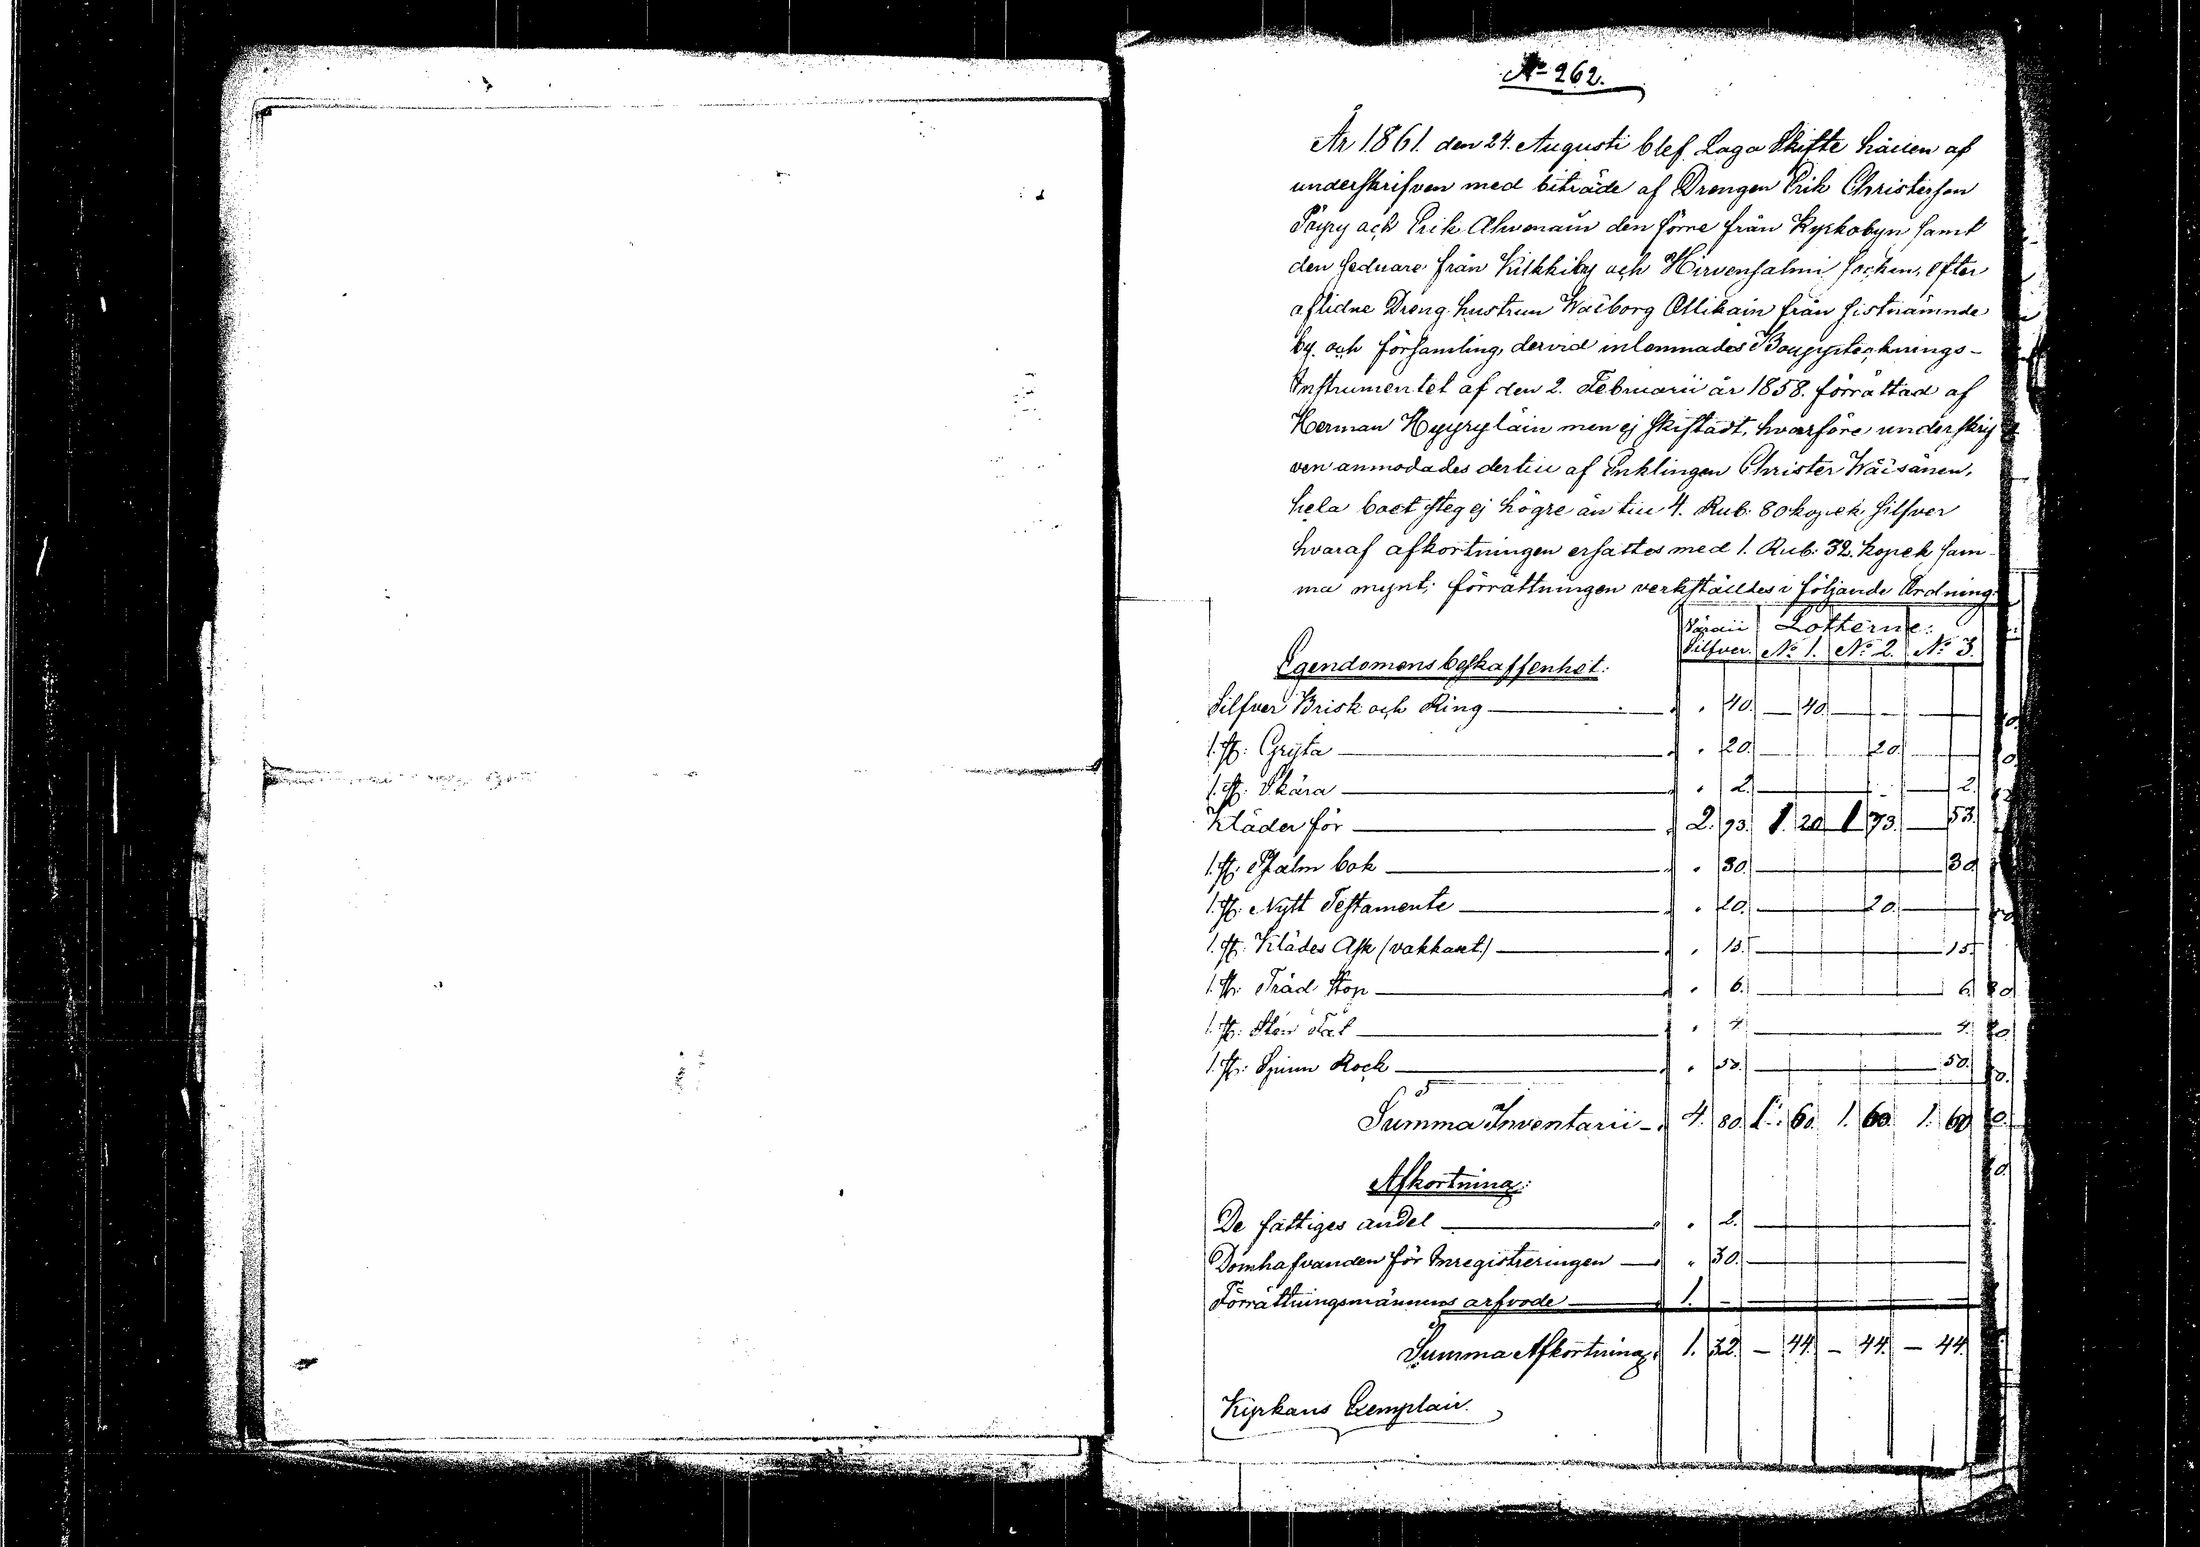 No 262.
År 1861. den 24. Augusti blef Laga Skifte hållen af
underskrifven med biträde af Drengen Erik Christersson
Pöyry och Erik Ahvenain den förre från Kyrkobyn samt
den sednare från Kilkkiby och Hirvensalmi socken, efter
aflidne Dreng hustrun Walborg Ollikain från sistnämnde
by och församling, dervid inlemnades Bouppteknings-
Instrumentet af den 2. Februarii år 1858. förrättad af
Herman Hyyryläin men ej skiftadt, hvarföre underskrif
ven anmodades dertill af Enklingen Christer Wäisänen,
hela boet steg ej högre än till 4. Rub. 80 kopek silfver
hvaraf afkortningen ersattes med 1. Rub: 32. kopek sam-
ma mynt; förrättningen verkställdes i följande Ordning:
Egendomens beskaffenhet: Silfver. Lotterne: No 1. No 2. No 3.
Silfver Brisk och Ring " 40. — 40.
1. st: Gryta " 20. 20.
1. st: Skära " 2. 2.
Kläder för 2. 93. 1. 20 1 73. 53.
1. st: Psalm bok " 30. 30
1. st: Nytt Testamente " 20. 20.
1. st: Klädes Ask (vakkant) " 15. 15.
1. st: Träd Stop " 6. 6.
1. st: Sten Fat " 4. 4.
1. st: Spinn Rock " 50. 50.
Summa Inventarii 4. 80. 1. 60. 1. 60. 1. 60
Afkortning:
De fattiges andel " 2.
Domhafvanden för Inregistreringen " 30.
Förrättningsmännens arfvode 1. —
Summa Afkortning 1. 32. — 44. — 44. — 44.
Kyrkans Exemplair.